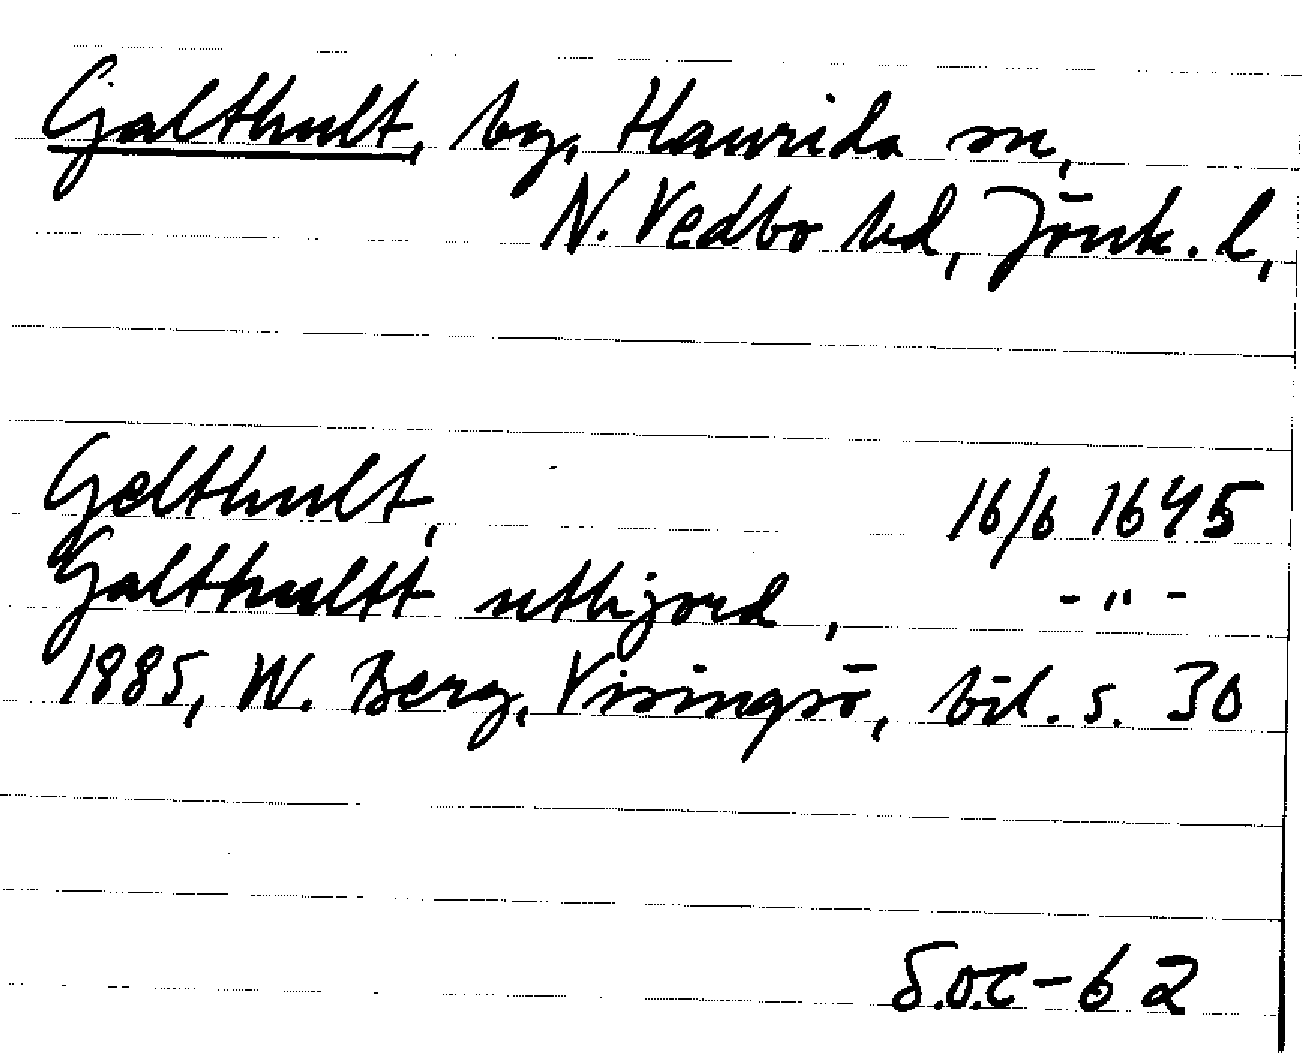 Galthult, by, Haurida sn,
N. Vedbo hd, Jönk. l,
Gelthult, 16/6 1645
Galthultt uthjord, - " -
1885, W. Berg, Visingsö, bil. s. 30
S.O.C-62